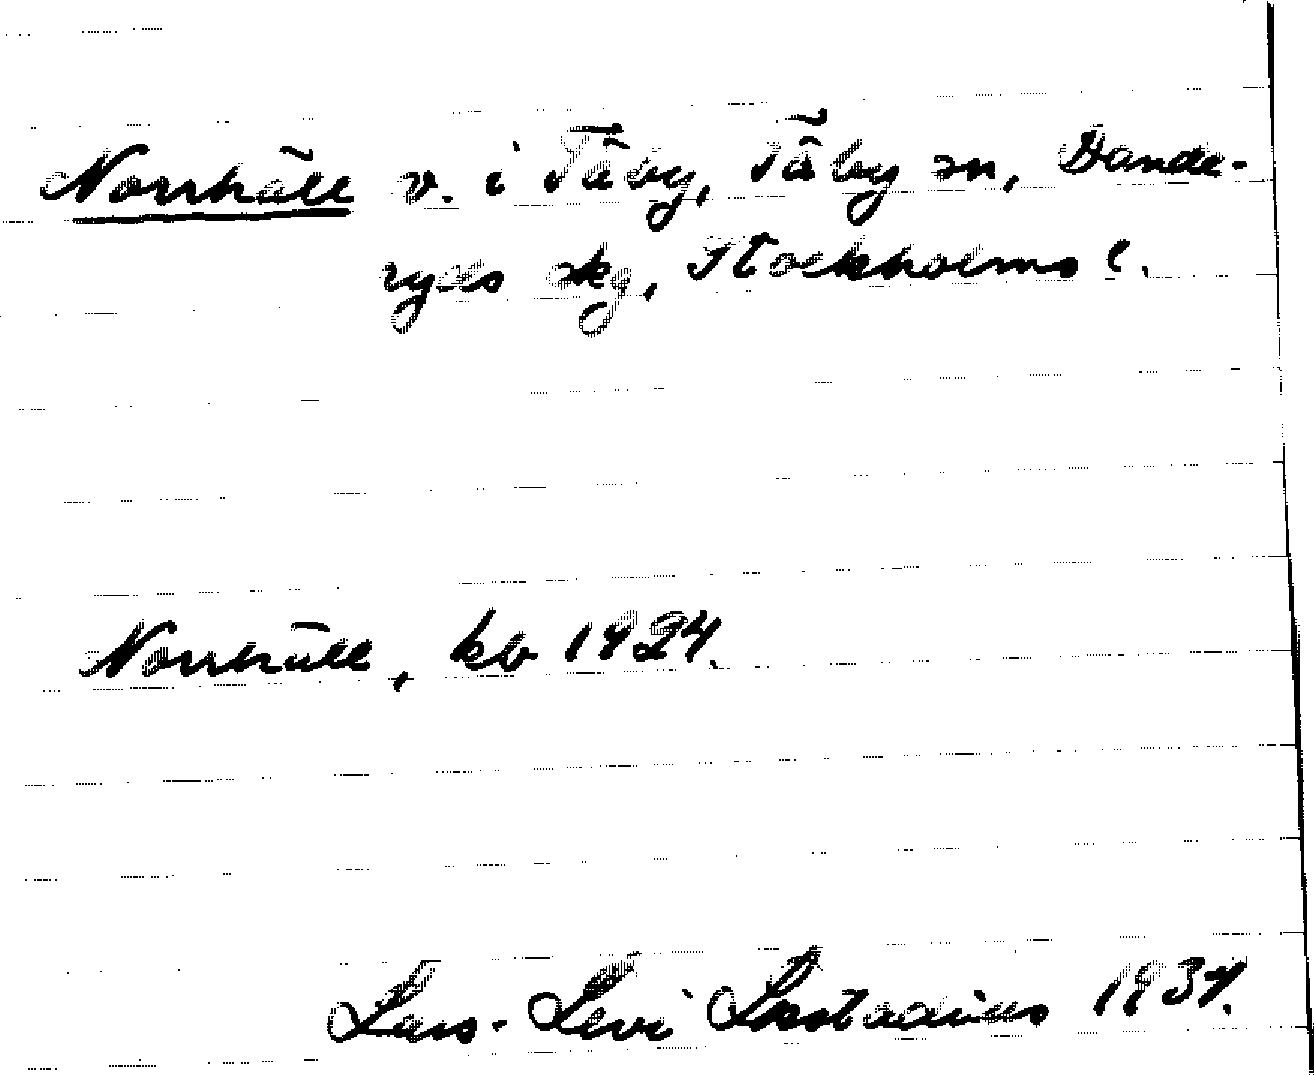 Norrhäll v. i Täby, Täby sn, Dande-
ryds skg, Stockholms l.
Norrhäll, kb 1924.
Lars-Levi Læstadius 1937.